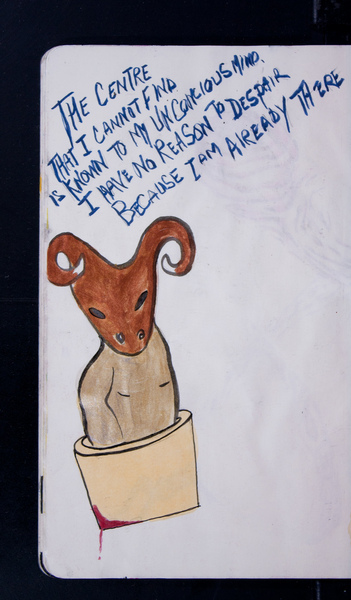 THE CENTRE
THAT I CANNOT FIND
IS KNOWN TO MY UNCONCIOUS MIND.
I HAVE NO REASON TO DESPAIR
BECAUSE I AM ALREADY THERE